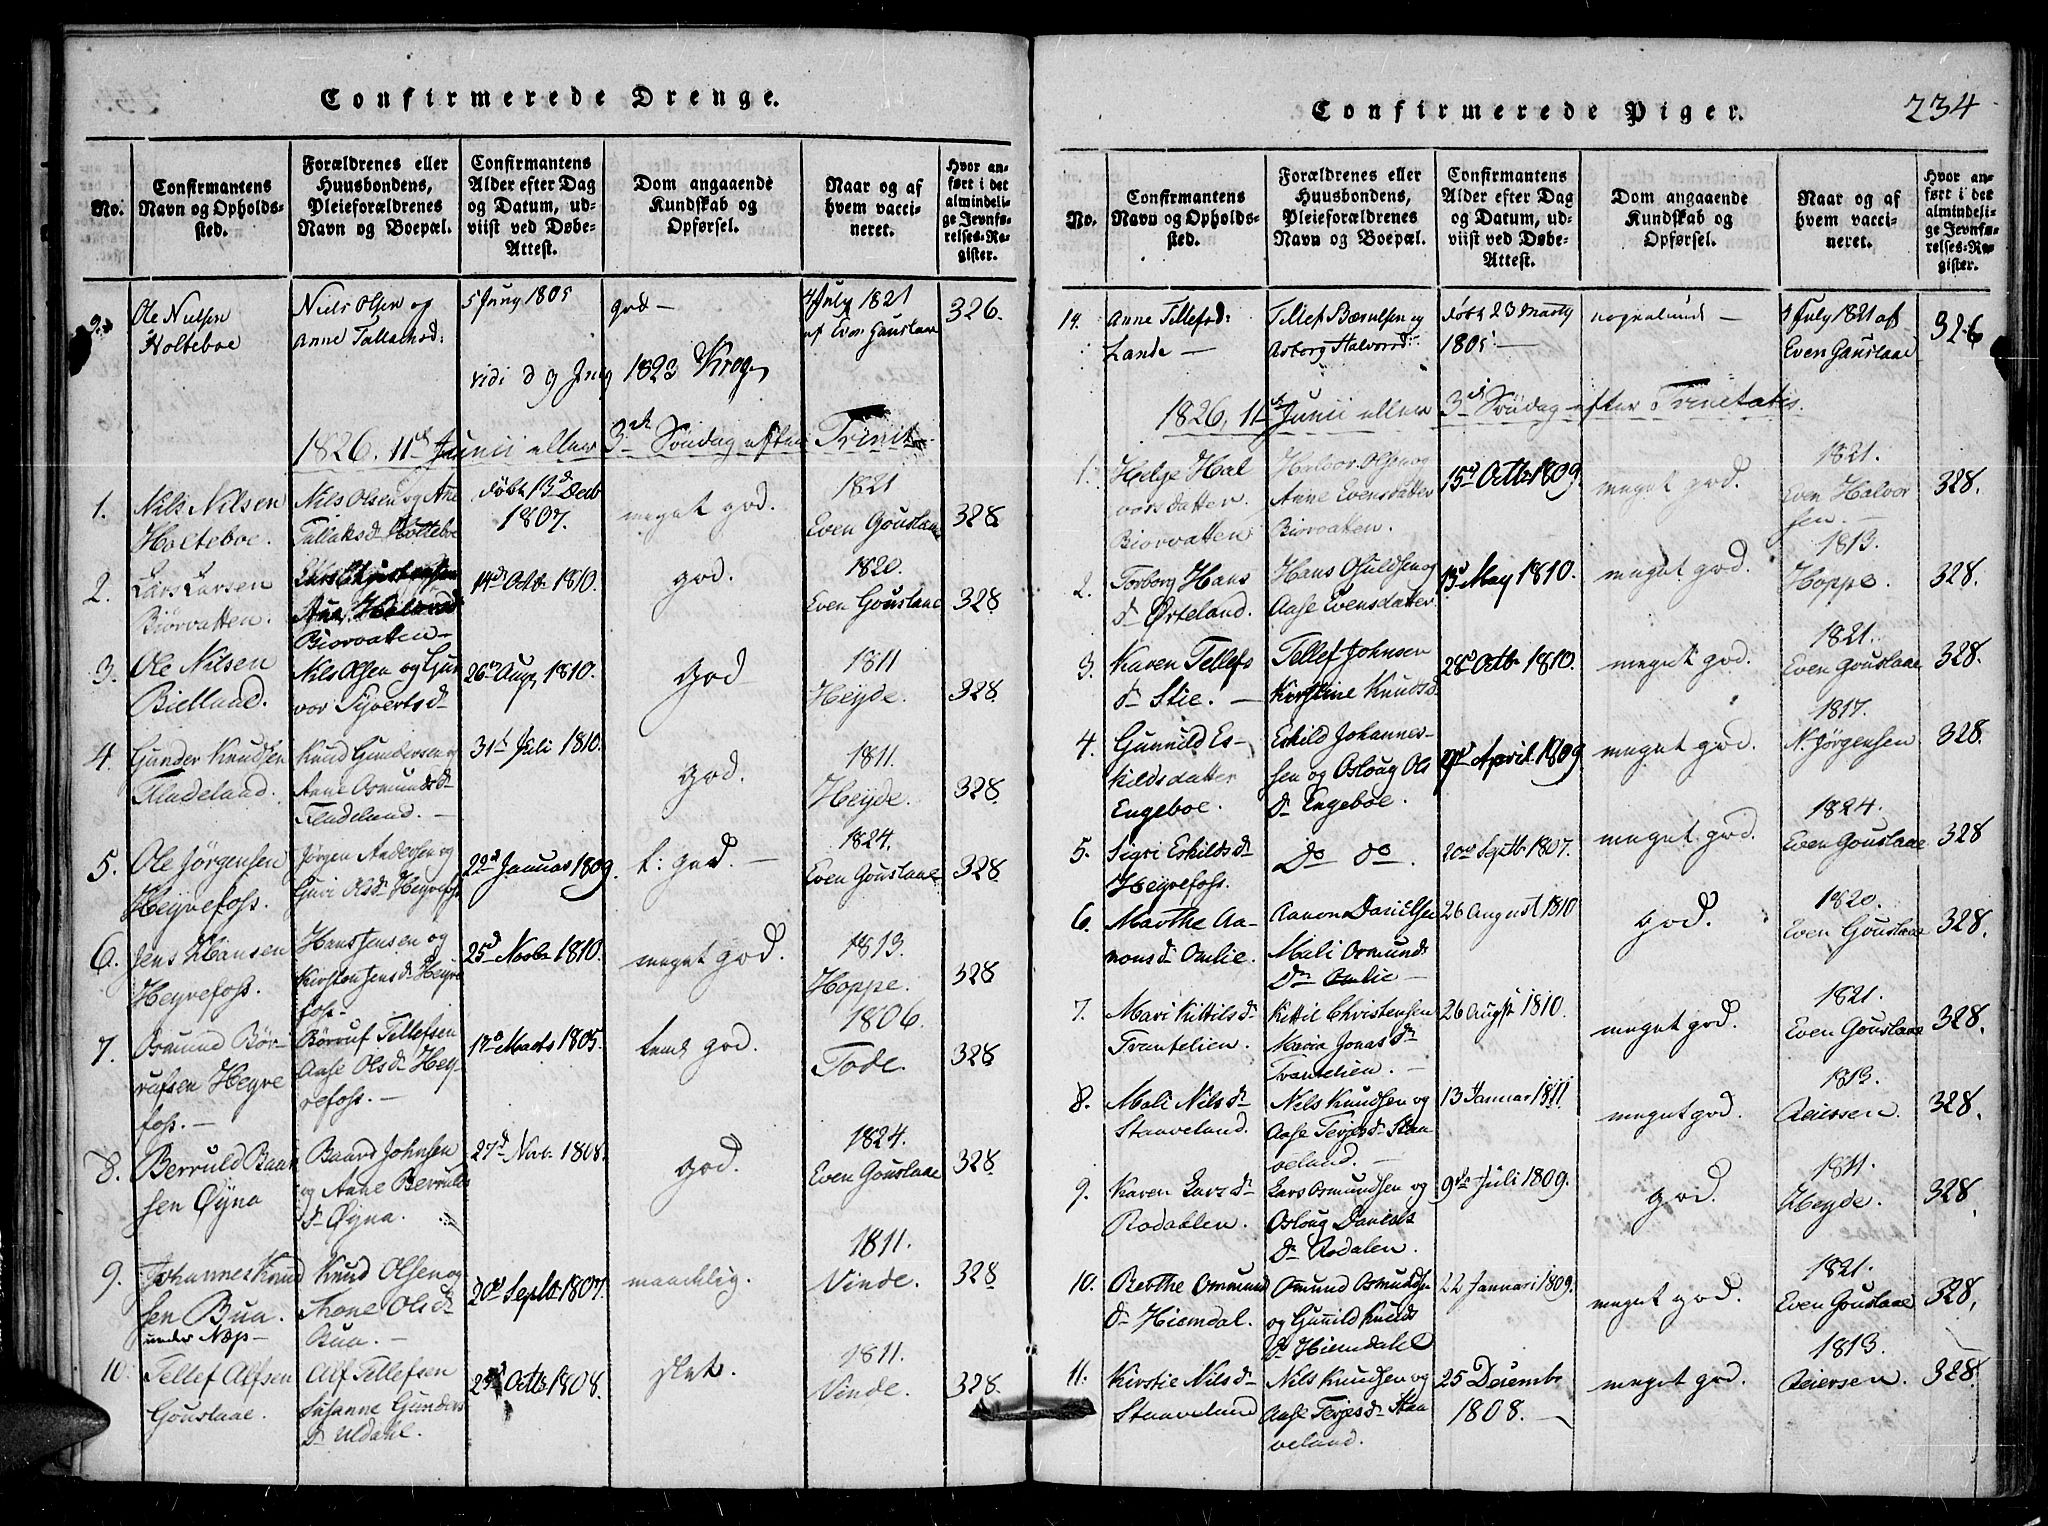 Confirmerede Drenge.
No.
Confirmantens
Navn og Opholds-
sted.
Forældrenes eller
Huusbondens,
Pleieforældrenes
Navn og Boepæl.
Confirmantens
Alder efter Dag
og Datum, ud-
viist ved Døbe-
Attest.
Dom angaaende
Kundskab og
Opførsel.
Naar og af
hvem vacci-
neret.
Hvor an-
ført i det
almindeli-
ge Jevnfø-
relses-Re-
gister.
Ole Nielsen
Holteboe
Niels Olsen og
Anne Tallachsd:
5 Juny 1805
god —
4 July 1821
af Even Gauslaa
326.
vidi d 9 Juny 1823 Krog
1826. 11te Junii eller 3die Søndag efter Trinit
1.
Nils Nilsen
Holteboe.
Nils Olsen og Ane
Tallaksdr Holteboe
døbt 13d Decb
1807.
meget god.
1821
Even Gouslaae
328
2.
Lars Larsen
Biorvatten.
Biorvatten —
14d Octbr 1810.
god.
1820.
Even Gouslaae
328
3.
Ole Nilsen
Bielland.
Nils Olsen og Gun
vor Syvertsdr
26d Aug. 1810.
god
1811
Heyde.
328
4.
Gunder Knudsen
Fladeland.
Knud Gundersen og
Anne Osmundsdr
Fladeland. —
31d Juli 1810.
god.
1811.
Heyde.
328
5.
Ole Jörgensen
Heyrefoss.
Jörgen Andersen og
Guri Olsdr Heyrefoss
22d Januar 1809.
t: god. —
1824.
Even Gouslaae
328
6.
Jens Hansen
Heyrefoss.
Hans Jensen og
Kirsten Jensdr Heyre
foss —
25d Novbr 1810.
meget god.
1813.
Hoppe.
328
7.
Osmund Bör-
rufsen Heyre
foss. —
Börruf Tellefsen
Aase Olsdr Hey
refoss. —
17d Marts 1805.
temt god.
1806.
Tode.
328
8.
Berruld Baar
sen Øyna
Baard Johnsen
og Anne Berrulds
dr Øyna.
27d Novr 1808.
god.
1824.
Even Gouslaae
328
9.
Johannes Knud
sen Bua.
under Næs —
Knud Olsen og
Anne Olsdr
Bua. —
20d Septbr 1807.
maadelig.
1811.
Vinde.
328
10.
Tellef Alfsen
Gouslaae.
Alf Tellefsen
Susanne Gunders
dr Uldahl.
Octbr 1808.
slet.
1811.
Vinde.
328
Confirmerede Piger.
234
No.
Confirmantens
Navn og Opholds-
sted.
Forældrenes eller
Huusbondens,
Pleieforældrenes
Navn og Boepæl.
Confirmantens
Alder efter Dag
og Datum, ud-
viist ved Døbe-
Attest.
Dom angaaende
Kundskab og
Opførsel.
Naar og af
hvem vacci-
neret.
Hvor an-
ført i det
almindeli-
ge Jevnfø-
relses-Re-
gister.
14.
Anne Tellefsd:
Lande —
Tellef Berulsen og
Asborg Halvorsd:
døbt 23 Marty
1805 —
4 July 1821 af
Even Gauslaae
326
1826, 11te Junii eller 3die Søndag efter Trinitatis.
1.
Helge Hal
vorsdatter
Biorvatten
Halvor Olsen og
Anne Evensdatter
Biorvatten.
15d Octbr 1809.
meget god.
1821.
Even Halvor
sen. —
328.
2.
Torborg Hans
dr Ørteland.
Hans Osuldsen og
Aase Evensdatter
13d May 1810.
meget god.
1813.
Hoppe.
328.
3.
Karen Tellefs
dr Stie. —
Tellef Johnsen
Kirstine Knudsd
28d Octbr 1810.
meget god.
1821.
Even Gouslaae
328.
4.
Gunnild Es-
kildsdatter
Engeboe.
Eskild Johannes-
sen og Osloug Ols
dr Engeboe.
April 1809
meget god.
1817.
N. Jörgensen
328.
5.
Sigri Eskildsdr
Heyrefoss.
Do do.
20de Septbr 1807.
meget god.
1824.
Even Gouslaae
328
6.
Marthe Aa-
nonsdr Omlie.
Aanon Danielsen
Mali Osmunds
dr Omlie —
26 August 1810
god.
1820.
Even Gouslaae
328.
7.
Mari Kittilsdr
Trantelien.
Kittil Christensen
Maria Jonasdr
Trantelien. —
26 Augst 1810.
meget god.
1821.
Even Gouslaae
328.
8.
Mali Nilsdr
Staaveland.
Nils Knudsen og
Aase Terjesdr Staa-
veland. —
13 Januar 1811
meget god.
1813.
Reiersen.
328.
9.
Karen Larsdr
Rodahlen.
Lars Osmundsen og
Osloug Daniels
dr Rodalen.
9de Juli 1809.
god.
1811.
Heyde.
328.
10.
Berthe Ommund
dr Hiemdal.
Ommund Osmundsen
og Gunnild Knuds
dr Hiemdahl
22 Januari 1809.
meget god.
1821.
Even Gouslaae
328.
11.
Kirstie Nilsdr
Staaveland
Nils Knudsen og
Aase Terjesdr Staa
veland.
25 Decembr
1808. —
meget god.
1813.
Reiersen.
328.